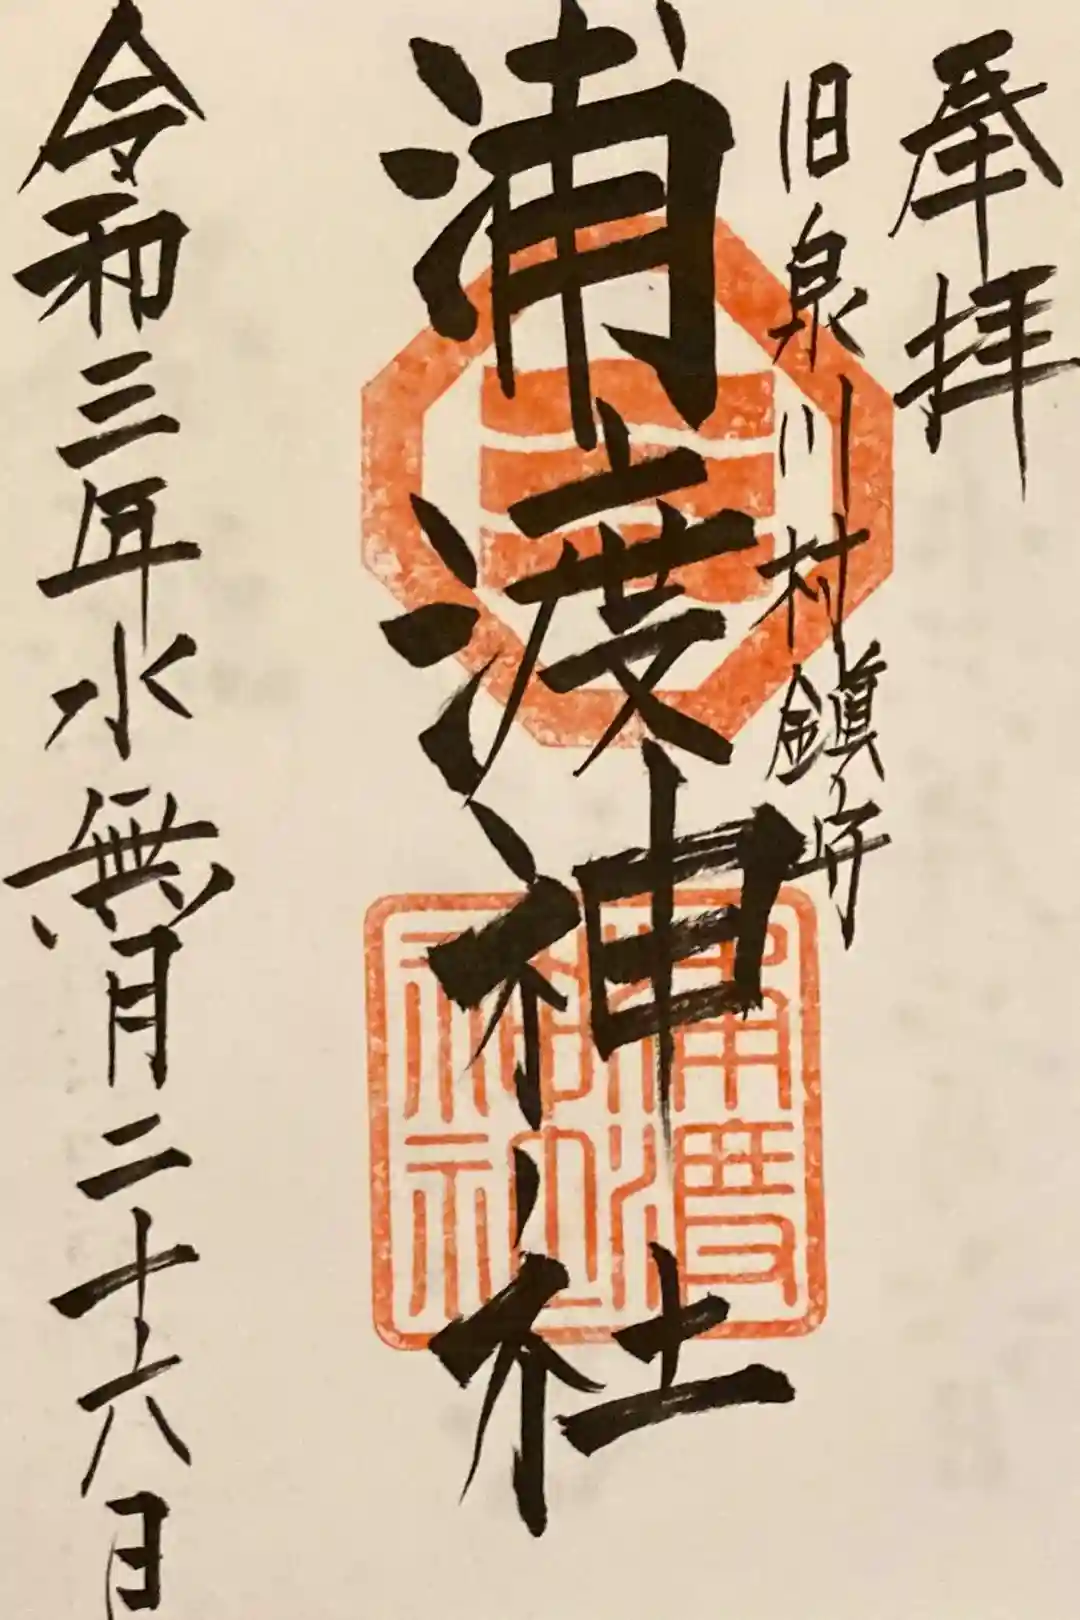 奉拝
旧泉川村鎮守
浦渡神社
浦渡神社
令和三年水無月二十六日